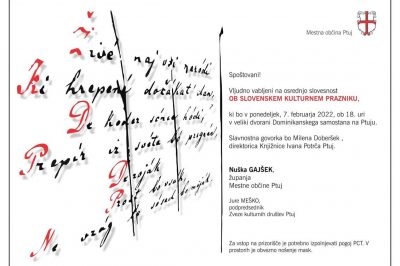 Mestna občina Ptuj
Živé naj vsi naródi
Ki hrepené dočakat' dan,
De koder sonce hodi,
Prepir iz svéta bo pregnan,
De rojak
Prost bo vsak,
Ne vrag, le sosed bo mejak.
Spoštovani!
Vljudno vabljeni na osrednjo slovesnost
OB SLOVENSKEM KULTURNEM PRAZNIKU,
ki bo v ponedeljek, 7. februarja 2022, ob 18. uri
v veliki dvorani Dominikanskega samostana na Ptuju.
Slavnostna govorka bo Milena Doberšek ,
direktorica Knjižnice Ivana Potrča Ptuj.
Nuška GAJŠEK,
županja
Mestne občine Ptuj
Jure MEŠKO,
podpredsednik
Zveze kulturnih društev Ptuj
Za vstop na prizorišče je potrebno izpolnjevati pogoj PCT. V
prostorih je obvezno nošenje mask.